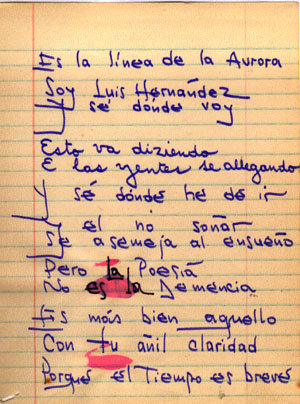 Es la línea de la Aurora
Soy Luis Hernández
Y sé dónde voy
Esto va diziendo
E las yentes se allegando
Y sé dónde he de ir
Y el no soñar
Se asemeja al ensueño
Pero la Poesía
No es la Demencia
Es más bien aquello
Con tu añil claridad
Porque el Tiempo es breve